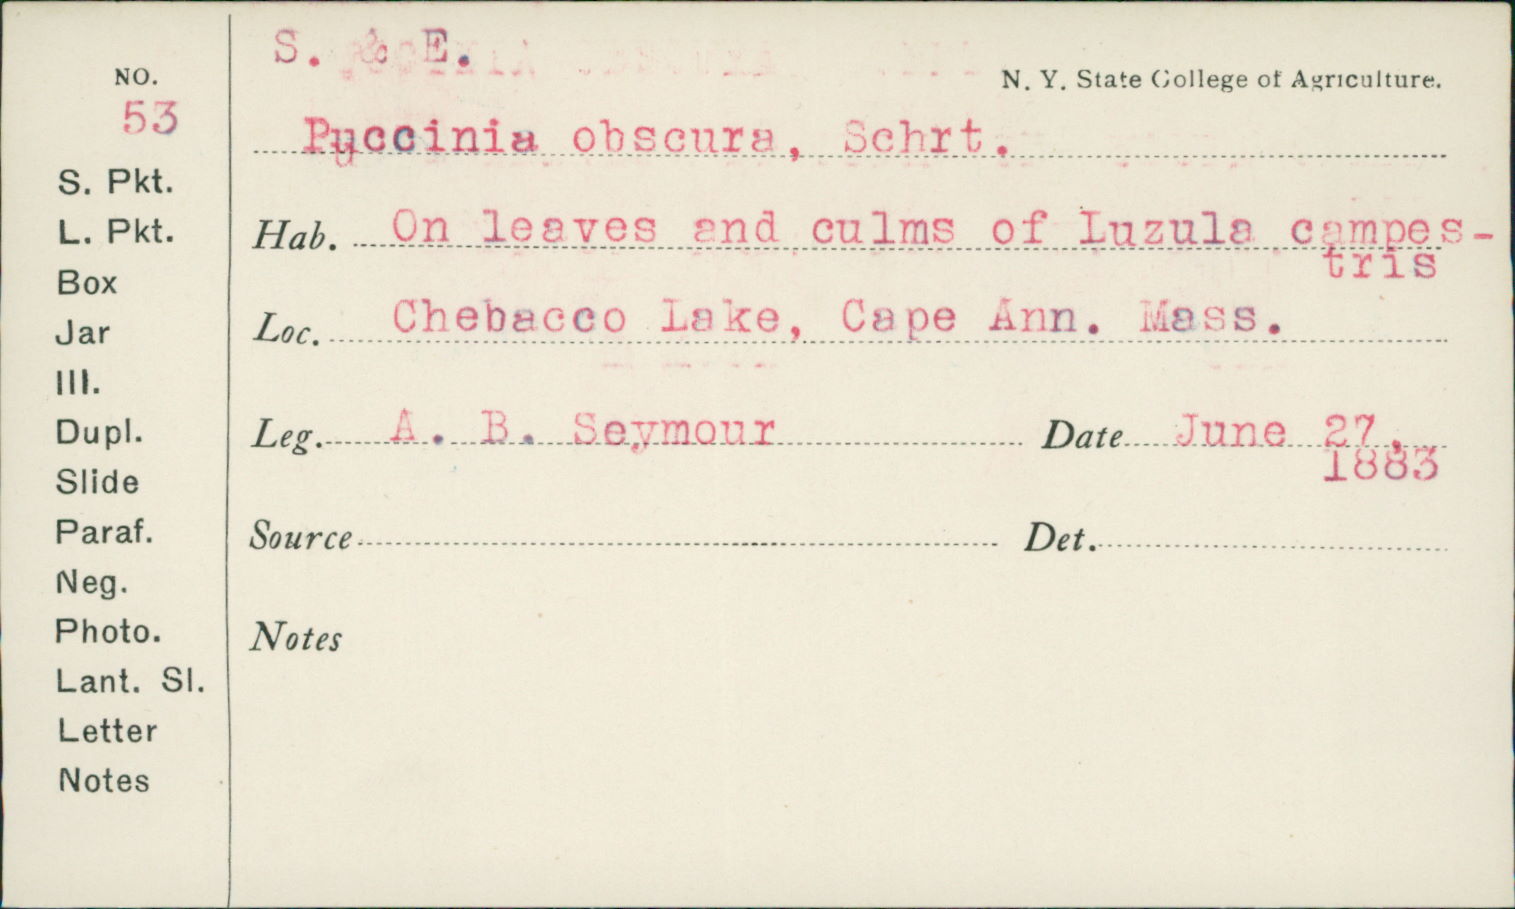 S. & E.
NO.
N. Y. State College of Agriculture.
53
Puccinia obscura, Schrt.
S. Pkt.
L. Pkt.
Hab. On leaves and culms of Luzula campes-
tris
Box
Loc. Chebacco Lake, Cape Ann. Mass.
Jar
Ill.
Dupl.
Leg. A. B. Seymour Date June 27,
1883
Slide
Paraf.
Source Det.
Neg.
Photo.
Notes
Lant. Sl.
Letter
Notes